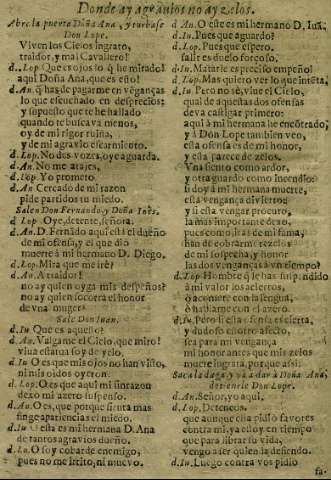 Donde ay agrauios no ay zelos.
Abre la puerta Doña Ana, y turbase
Don Lope.
Viven los Cielos ingrato,
traidor, y mal Cavallero!
d. Lop. Que es, ojos lo q̃ he mirado?
aqui Doña Ana, que es esto?
d. An. q̃ has de pagarme en vẽganças
lo que escuchado en desprecios;
y supuesto que te he hallado
quando te buscava menos,
oy de mi rigor ruina,
y de mi agravio escarmiento.
d. Lop. No des vozes, oye aguarda.
d. An. No me atajes.
d. Lop. Yo prometo.
d. An Cercado de mi razon
pide partidos tu miedo.
Salen Don Fernando, y Doña Ines.
d. Lop Oye, detente, señora.
d. An. D. Fernãdo aqui està el dueño
de mi ofensa, y el que diò
muerte à mi hermano D. Diego.
d. Lop. Mira que me irè?
d. An. A traidor!
no ay quien oyga mis despeños?
no ay quien socorra el honor
de vna muger?
Sale Don Juan.
d. Iu Que es aquesto?
d. An. Valgame el Cielo, que miro!
viva estatua soy de yelo.
d. In. O es que mis ojos no han visto,
ni mis oidos oyeron.
d. Lop. O es que aqui mi sinrazon
dexò mi azero suspenso.
d. An. O es, que porque sienta mas
finge apariencias el miedo.
d. In O esta es mi hermana D. Ana
de tantos agravios dueño.
d. Iu. O soy cobarde enemigo,
pues no me irrito, ni muevo.
d. An. O este es mi hermano D. Iuã,
d. Iu. Pues que aguardo?
d. Lop. Pues que espero.
salir es duelo forçoso.
d. In. Matarle es preciso empeño!
d. Lop. Mas quiero ver lo que intẽta.
d. Iu. Pero no sè, vive el Cielo,
qual de aquestas dos ofensas
deva castigar primero:
aqui à mi hermana he encõtrado,
y à Don Lope tambien veo,
esta ofensa es de mi honor,
y esta parece de zelos.
Vna siento como ardor,
y otra guardo como incendio:
si doy à mi hermana muerte,
esta vengança divierto;
y si esta vengar procuro,
la mas importante dexo,
pues como iras de mi fama,
han de cobrarme rezelos
de mi sospecha, y honor
las dos venganças à vn tiempo?
d. Lop. Hombre q̃ he has suspendido
à mi valor los aciertos,
ò acomete con la lengua,
ò hablame con el azero.
d. Iu. Pero si esta ofensa es cierta,
y dudoso en otro afecto,
sea para mi vengança
mi honor antes que mis zelos
muere ingrata, porque assi:
Saca la daga, y va a dar a Doña Ana,
detienele Don Lope.
d. An. Señor, yo aqui.
d. Lop. Deteneos.
que aunque ella pidio favores
contra mi, ya estoy en tiempo
que para librar su vida,
vengo a ser quien la defiendo.
d. Iu. Luego contra vos pidio
fa-